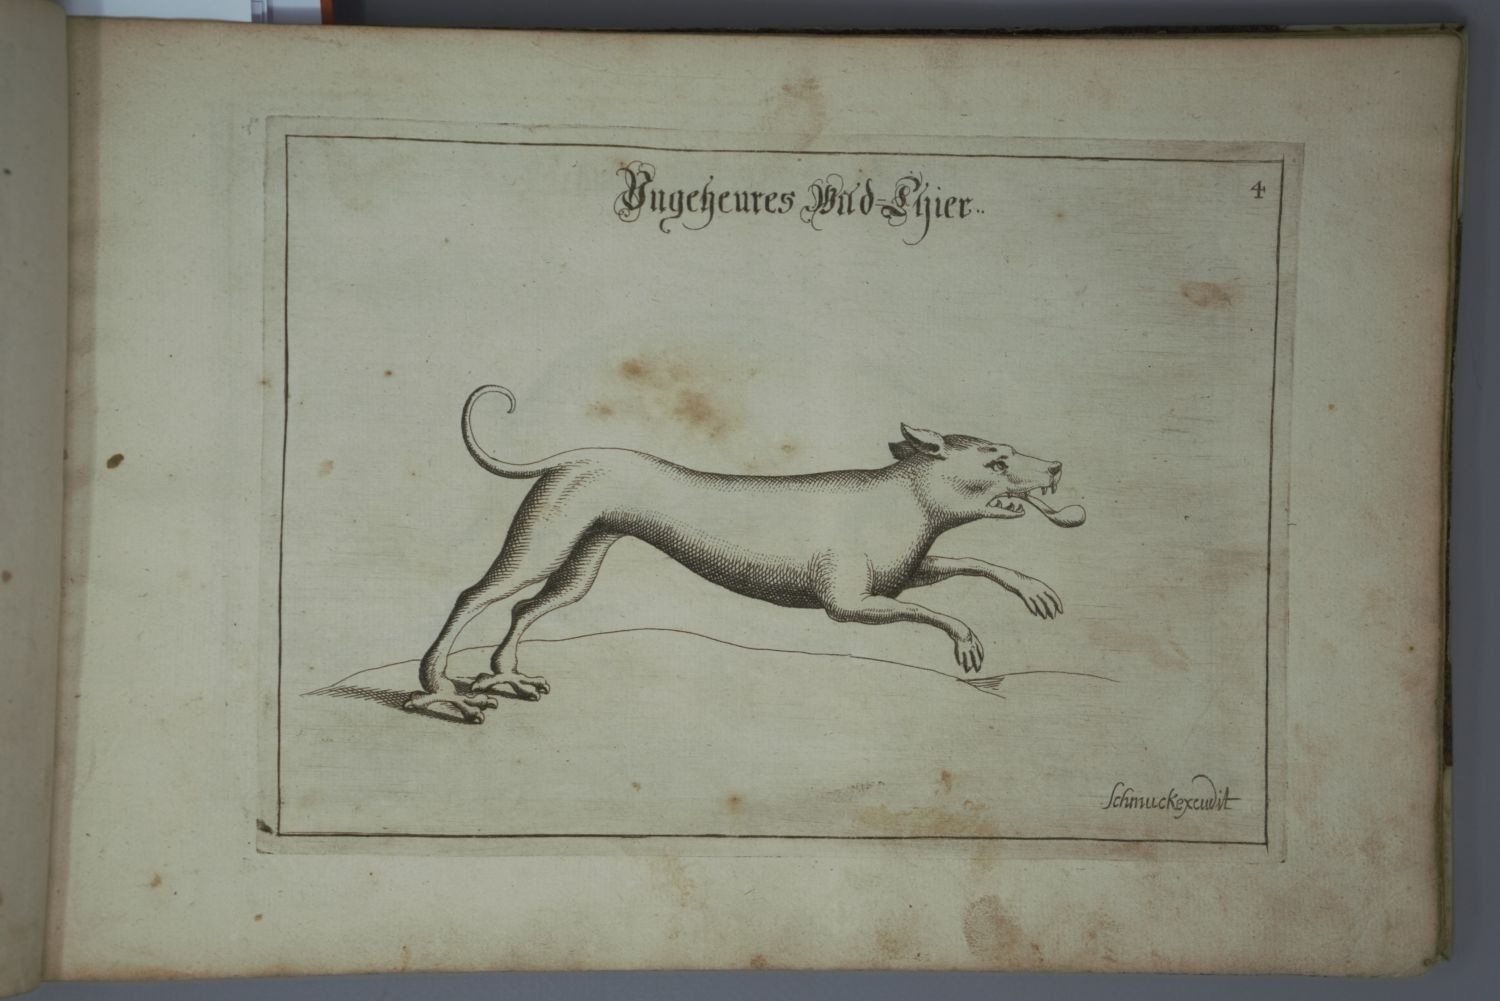 Vngeheures Wild-Thier..
4
Schmuck excudit